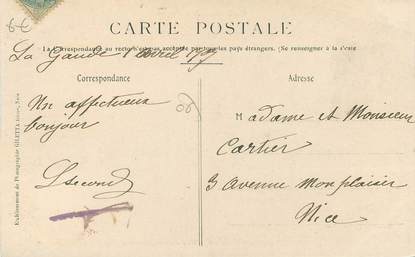 6€
CARTE POSTALE
La Correspondance au recto n'est pas acceptée par tous les pays étrangers. (Se renseigner à la Poste
La Gaude 1 Avril
Correspondance
Adresse
Un affectueux
bonjour
06
Madame et Monsieur
Cartier
3 Avenue Monplaisir
Nice
Etablissement de Photographie GILETTA frères, Nice